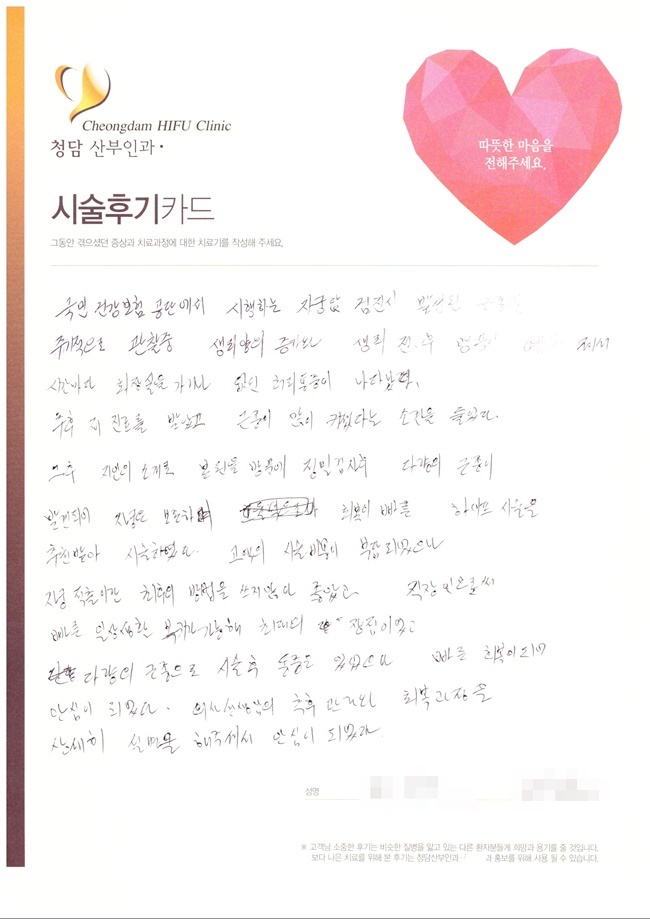 Cheongdam HIFU Clinic
청담 산부인과
따뜻한 마음을
전해주세요.
시술후기카드
그동안 겪으셨던 증상과 치료과정에 대한 치료기를 작성해 주세요.
국민 건강보험 공단에서 시행하는 자궁암 검진시 발견된
주기적으로 관찰중 생리양의 증가와 생리 전·후
시간마다 화장실을 가거나 없던 허리통증이 나타났다.
우후 재 진료를 받았고 근종이 많이 커졌다는 소견을 들었다.
그후 지인의 소개로 본원을 방문해 정밀검사후 다량의 근종이
발견되어 자궁도 보존하며 회복이 빠른 하이푸 시술을
추천받아 시술하였다. 고액의 시술비용이 부담 되었으나
자궁 적출이란 최후의 방법을 쓰지않아 좋았고 직장인으로써
빠른 일상생활 복귀가 가능해 최대의 장점이었고
다량의 근종으로 시술후 통증도 있었으나 빠른 회복이 되어
안심이 되었다. 의사선생님의 추후 관리와 회복과정을
상세히 설명을 해주셔서 안심이 되었다.
성명
※ 고객님 소중한 후기는 비슷한 질병을 앓고 있는 다른 환자분들게 희망과 용기를 줄 것입니다.
보다 나은 치료를 위해 본 후기는 청담산부인과 과 홍보를 위해 사용 될 수 있습니다.